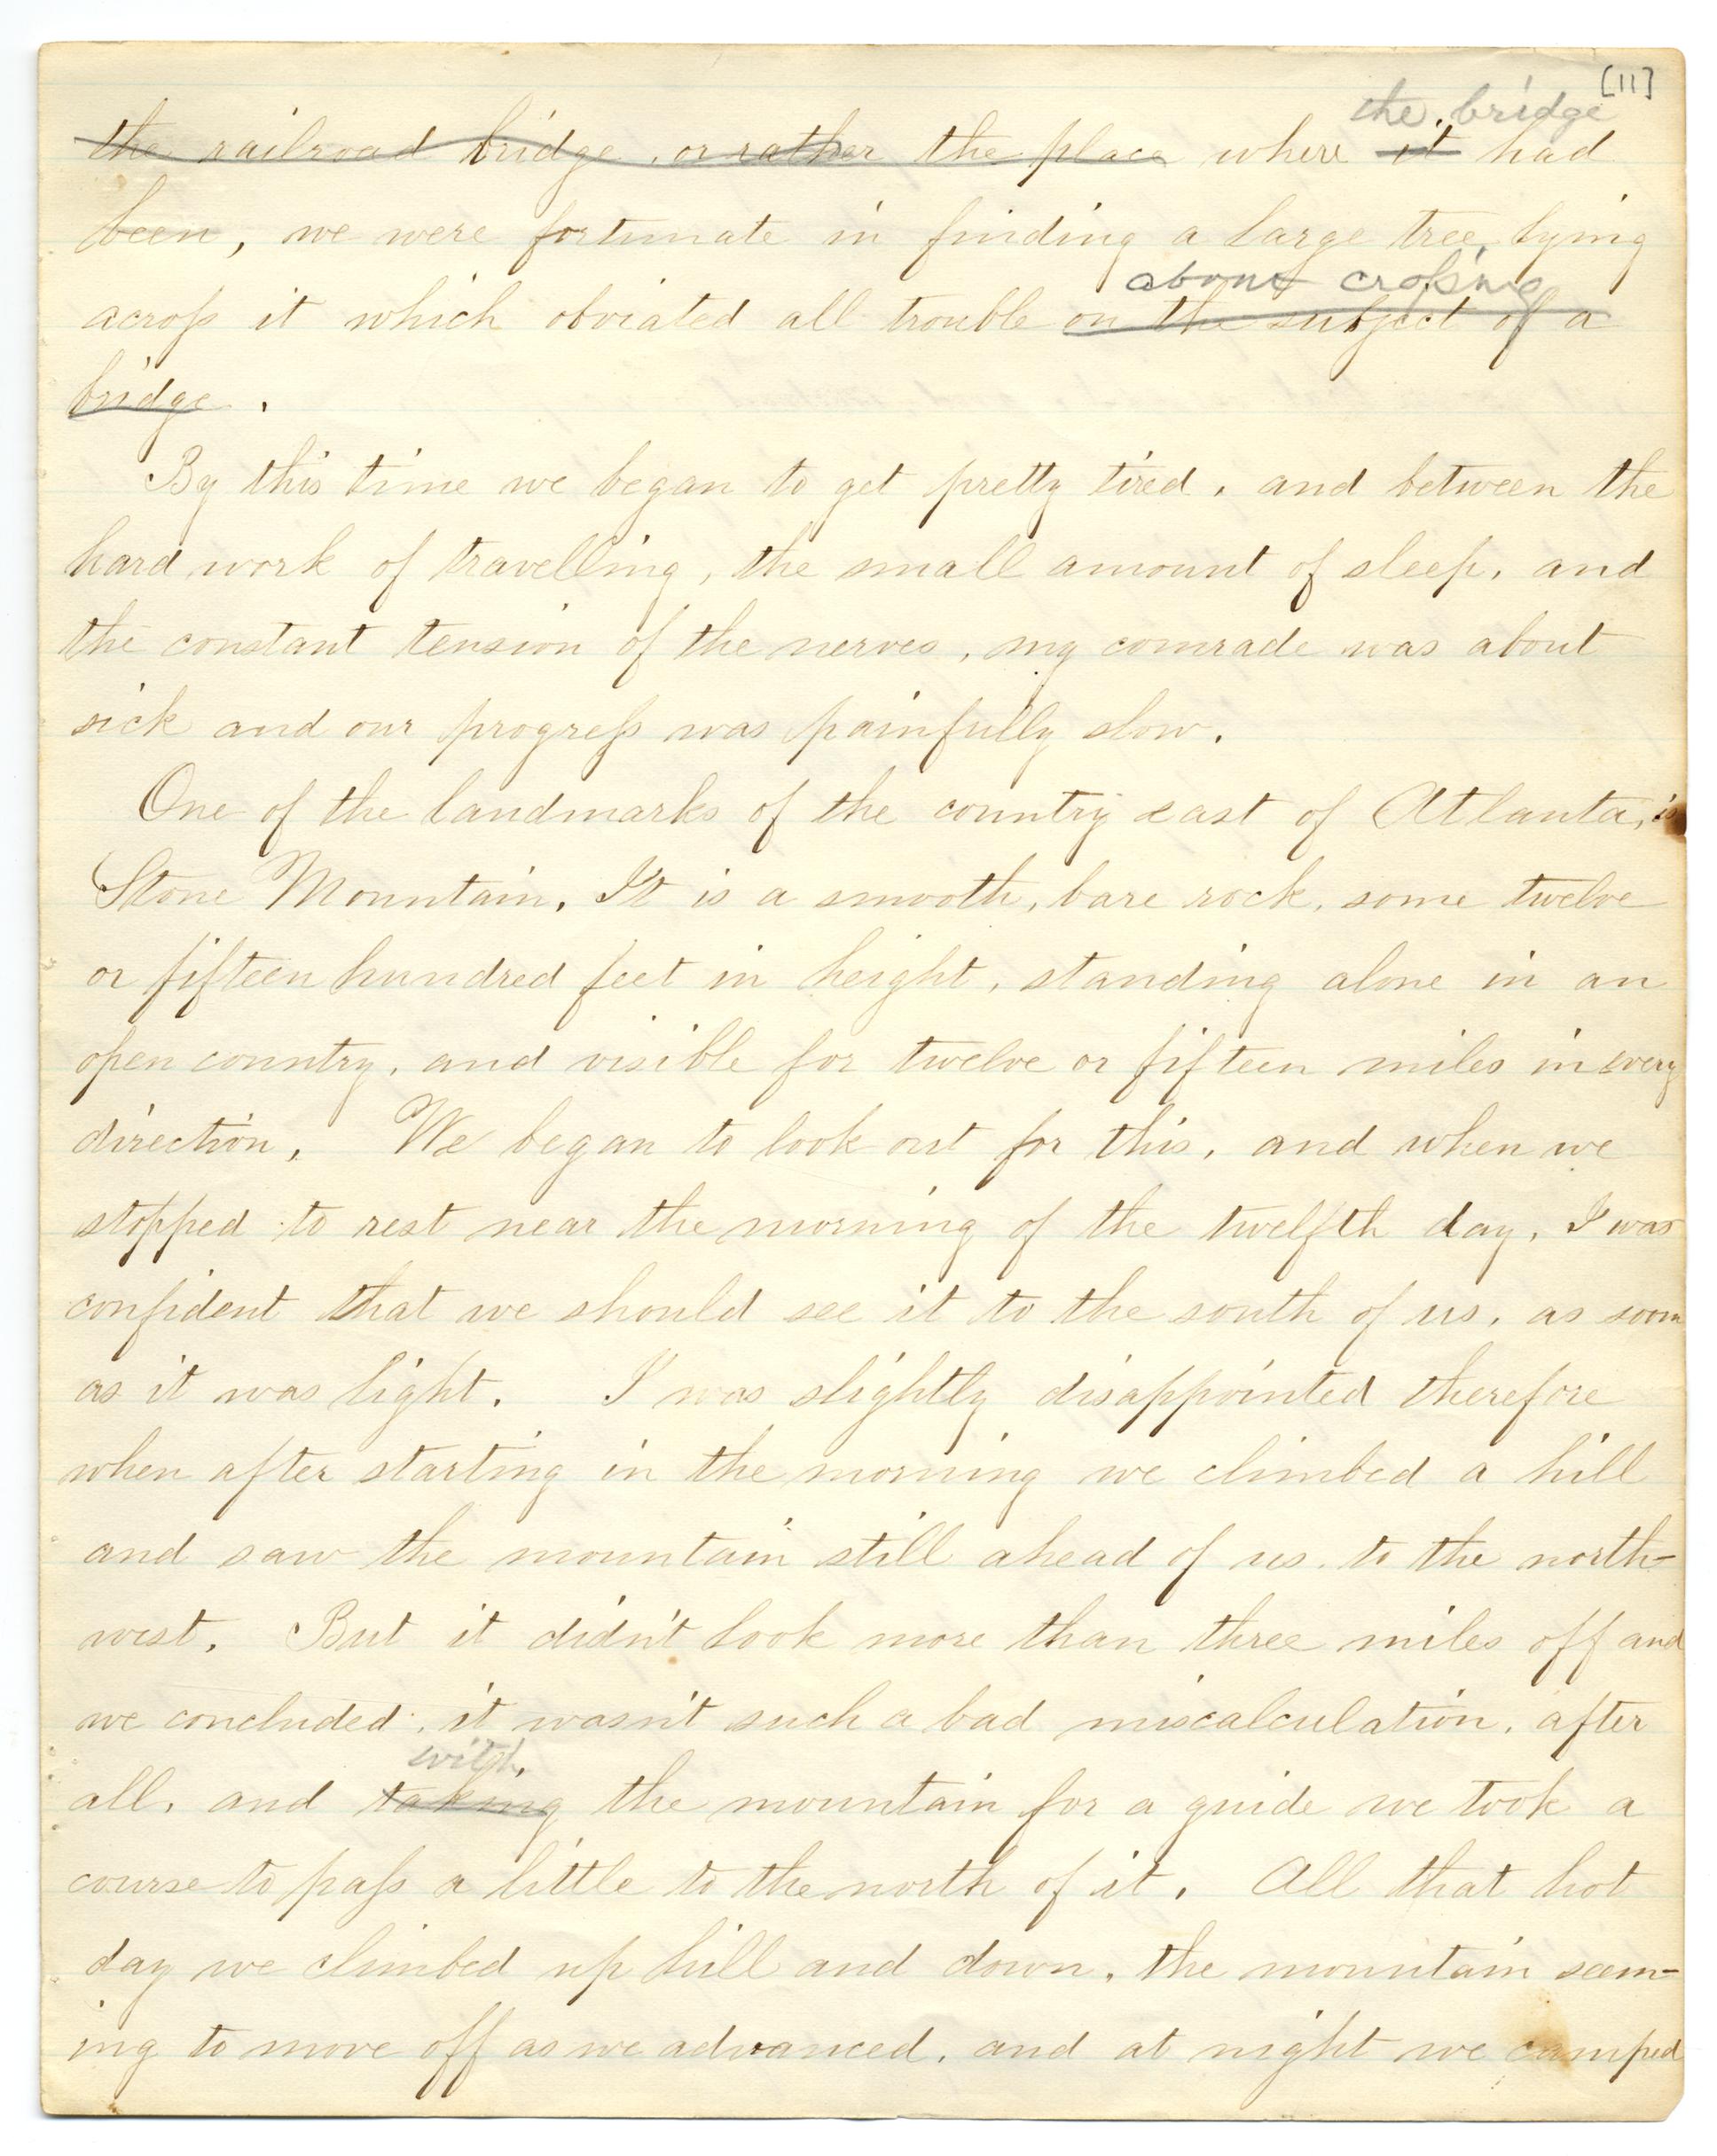 [11]
the bridge
the railroad bridge, or rather the place where it had
been, we were fortunate in finding a large tree lying
about crossing
across it which obviated all trouble on the subject of a
bridge.
By this time we began to get pretty tired, and between the
hard work of travelling, the small amount of sleep, and
the constant tension of the nerves, my comrade was about
sick and our progress was painfully slow.
One of the landmarks of the country east of Atlanta, is
Stone Mountain. It is a smooth, bare rock, some twelve
or fifteen hundred feet in height, standing alone in an
open country, and visible for twelve or fifteen miles in every
direction. We began to look out for this, and when we
stopped to rest near the morning of the twelfth day, I was
confident that we should see it to the south of us, as soon
as it was light. I was slightly disappointed therefore
when after starting in the morning we climbed a hill
and saw the mountain still ahead of us to the north-
west. But it didn't look more than three miles off and
we concluded, it wasn't such a bad miscalculation, after
with
all, and taking the mountain for a guide we took a
course to pass a little to the north of it. All that hot
day we climbed up hill and down, the mountain seem-
ing to move off as we advanced, and at night we camped